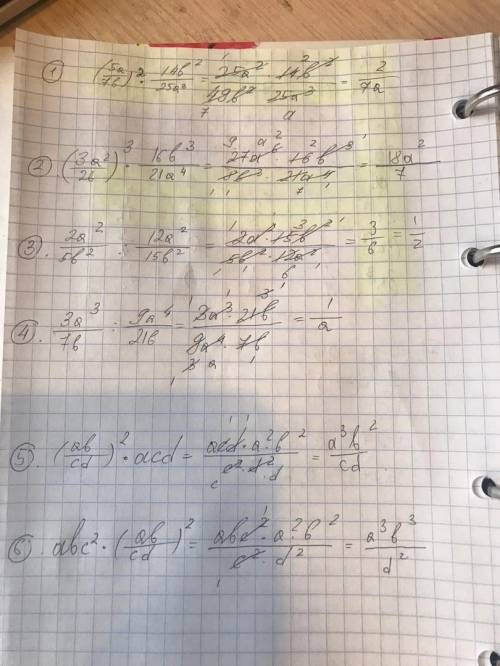 ① (5a/7b)² · 14b²/25a³ = 25a² · 14b²/49b² · 25a³ = 2/7a
② (3a²/2b)³ · 16b³/21a⁴ = 27a⁶ · 16b³/8b³ · 21a⁴ = 18a²/7
③. 2a²/5b² : 12a²/15b² = 2a² · 15b²/5b² · 12a² = 3/6 = 1/2
④. 3a³/7b : 9a⁴/21b = 3a³ · 21b/9a⁴ · 7b = 1/a
⑤. (ab/cd)² · acd = acd · a²b²/c² · d² = a³b²/cd
⑥. abc² · (ab/cd)² = abc² · a²b²/c² · d² = a³b³/d²